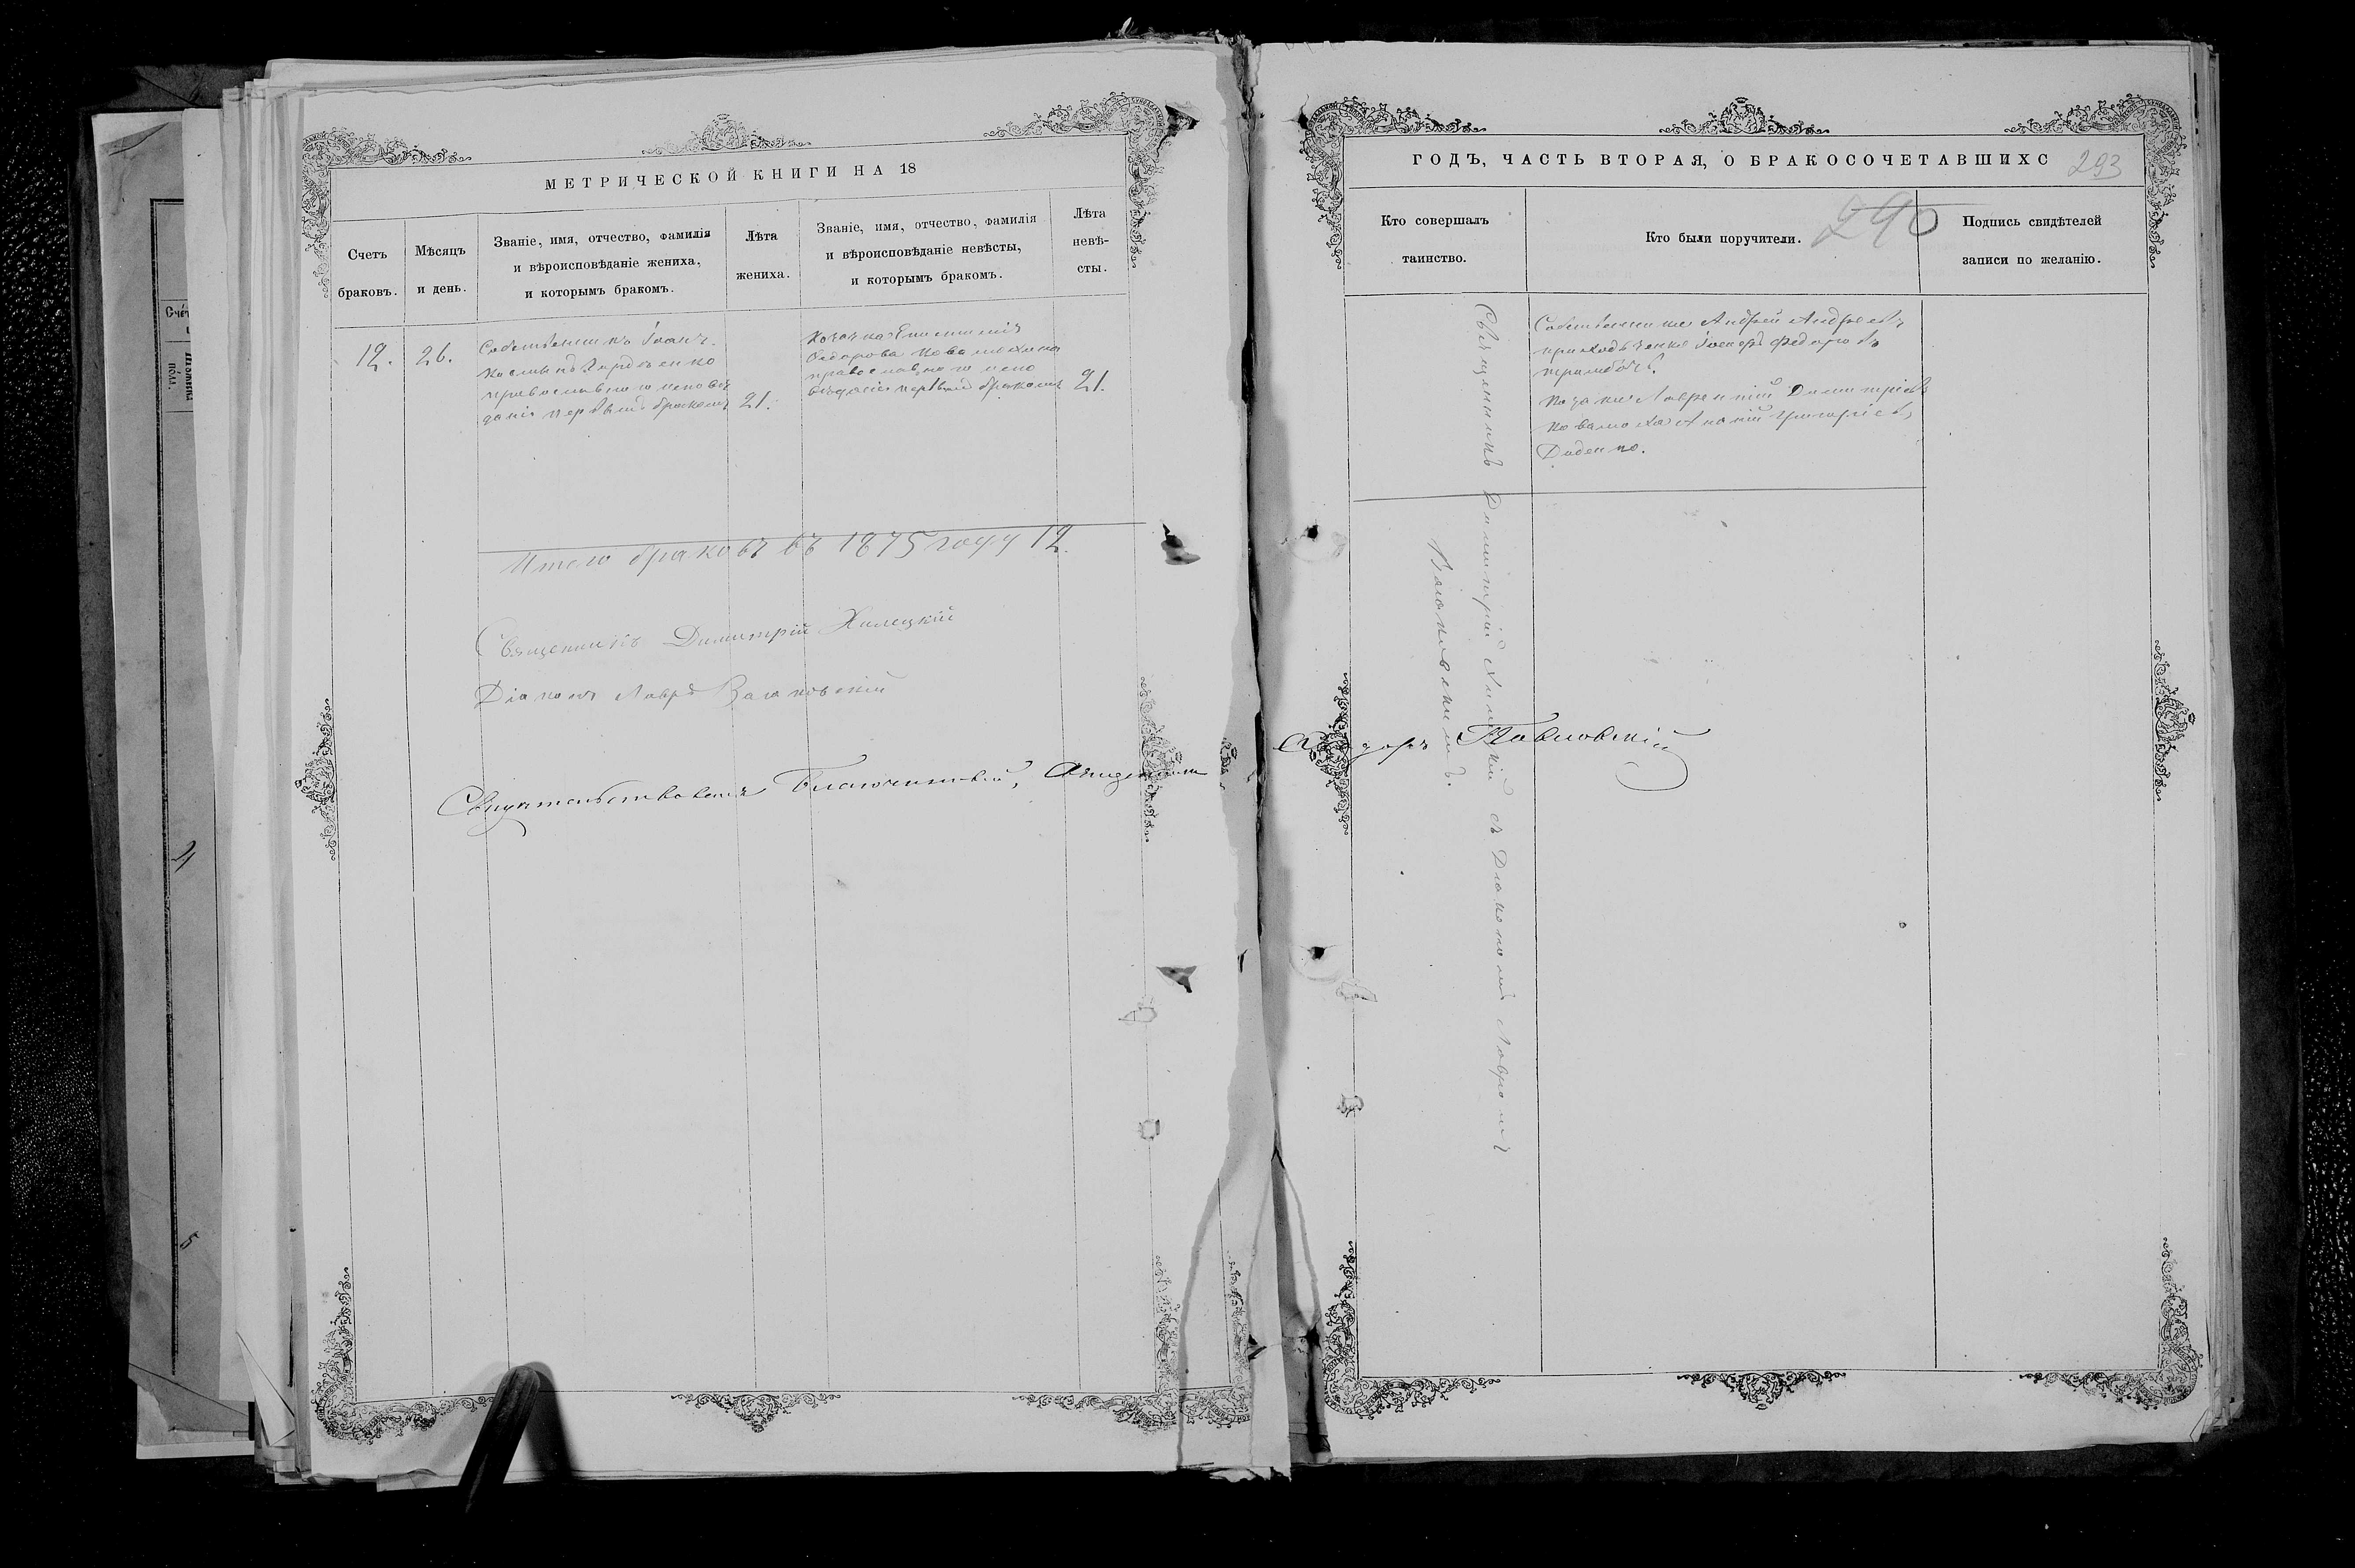 МЕТРИЧЕСКОЙ КНИГИ НА 18
Счетъ браковъ.
Мѣсяцъ и день.
Званіе, имя, отчество, фамилія
и вѣроисповѣданіе жениха,
и которымъ бракомъ.
Лѣта
жениха.
Званіе, имя, отчество, фамилія
и вѣроисповѣданіе невѣсты,
и которымъ бракомъ.
Лѣта
невѣ-
сты.
12.
26.
Собственникъ Іоаннъ
православнаго исповѣ
данія первымъ бракомъ
21.
Козачка
Федорова
православнаго испо
вѣданія первымъ бракомъ
21.
Итого браковъ въ 1875 году 12.
Священникъ Димитрій Хилецкій
Діаконъ Лавръ
Свидѣтельствовалъ Благочинный, Священникъ Ѳеодоръ Павловскій
ГОДЪ, ЧАСТЬ ВТОРАЯ, О БРАКОСОЧЕТАВШИХС
293
290
Кто совершалъ
таинство.
Кто были поручители.
Подпись свидѣтелей
записи по желанію.
Священникъ Димитрій Хилецкій съ Діакономъ Лавромъ
Собственники Андрей Андреевъ
Іосифъ Федоровъ
Козаки Лаврентій Димитріевъ
Ананій Григоріевъ
Диденко.